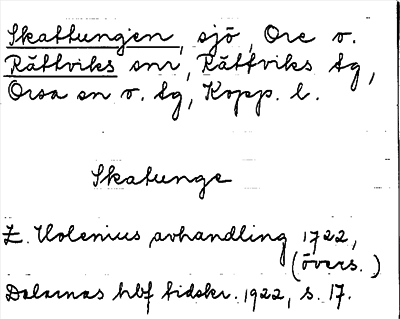 Skattungen, sjö, Ore o.
Rättviks snr, Rättviks tg,
Orsa sn o. tg, Kopp. l.
Skatunge
Z. Holenius avhandling 1722,
(övers.)
Dalarnas hbf tidskr. 1922, s. 17.